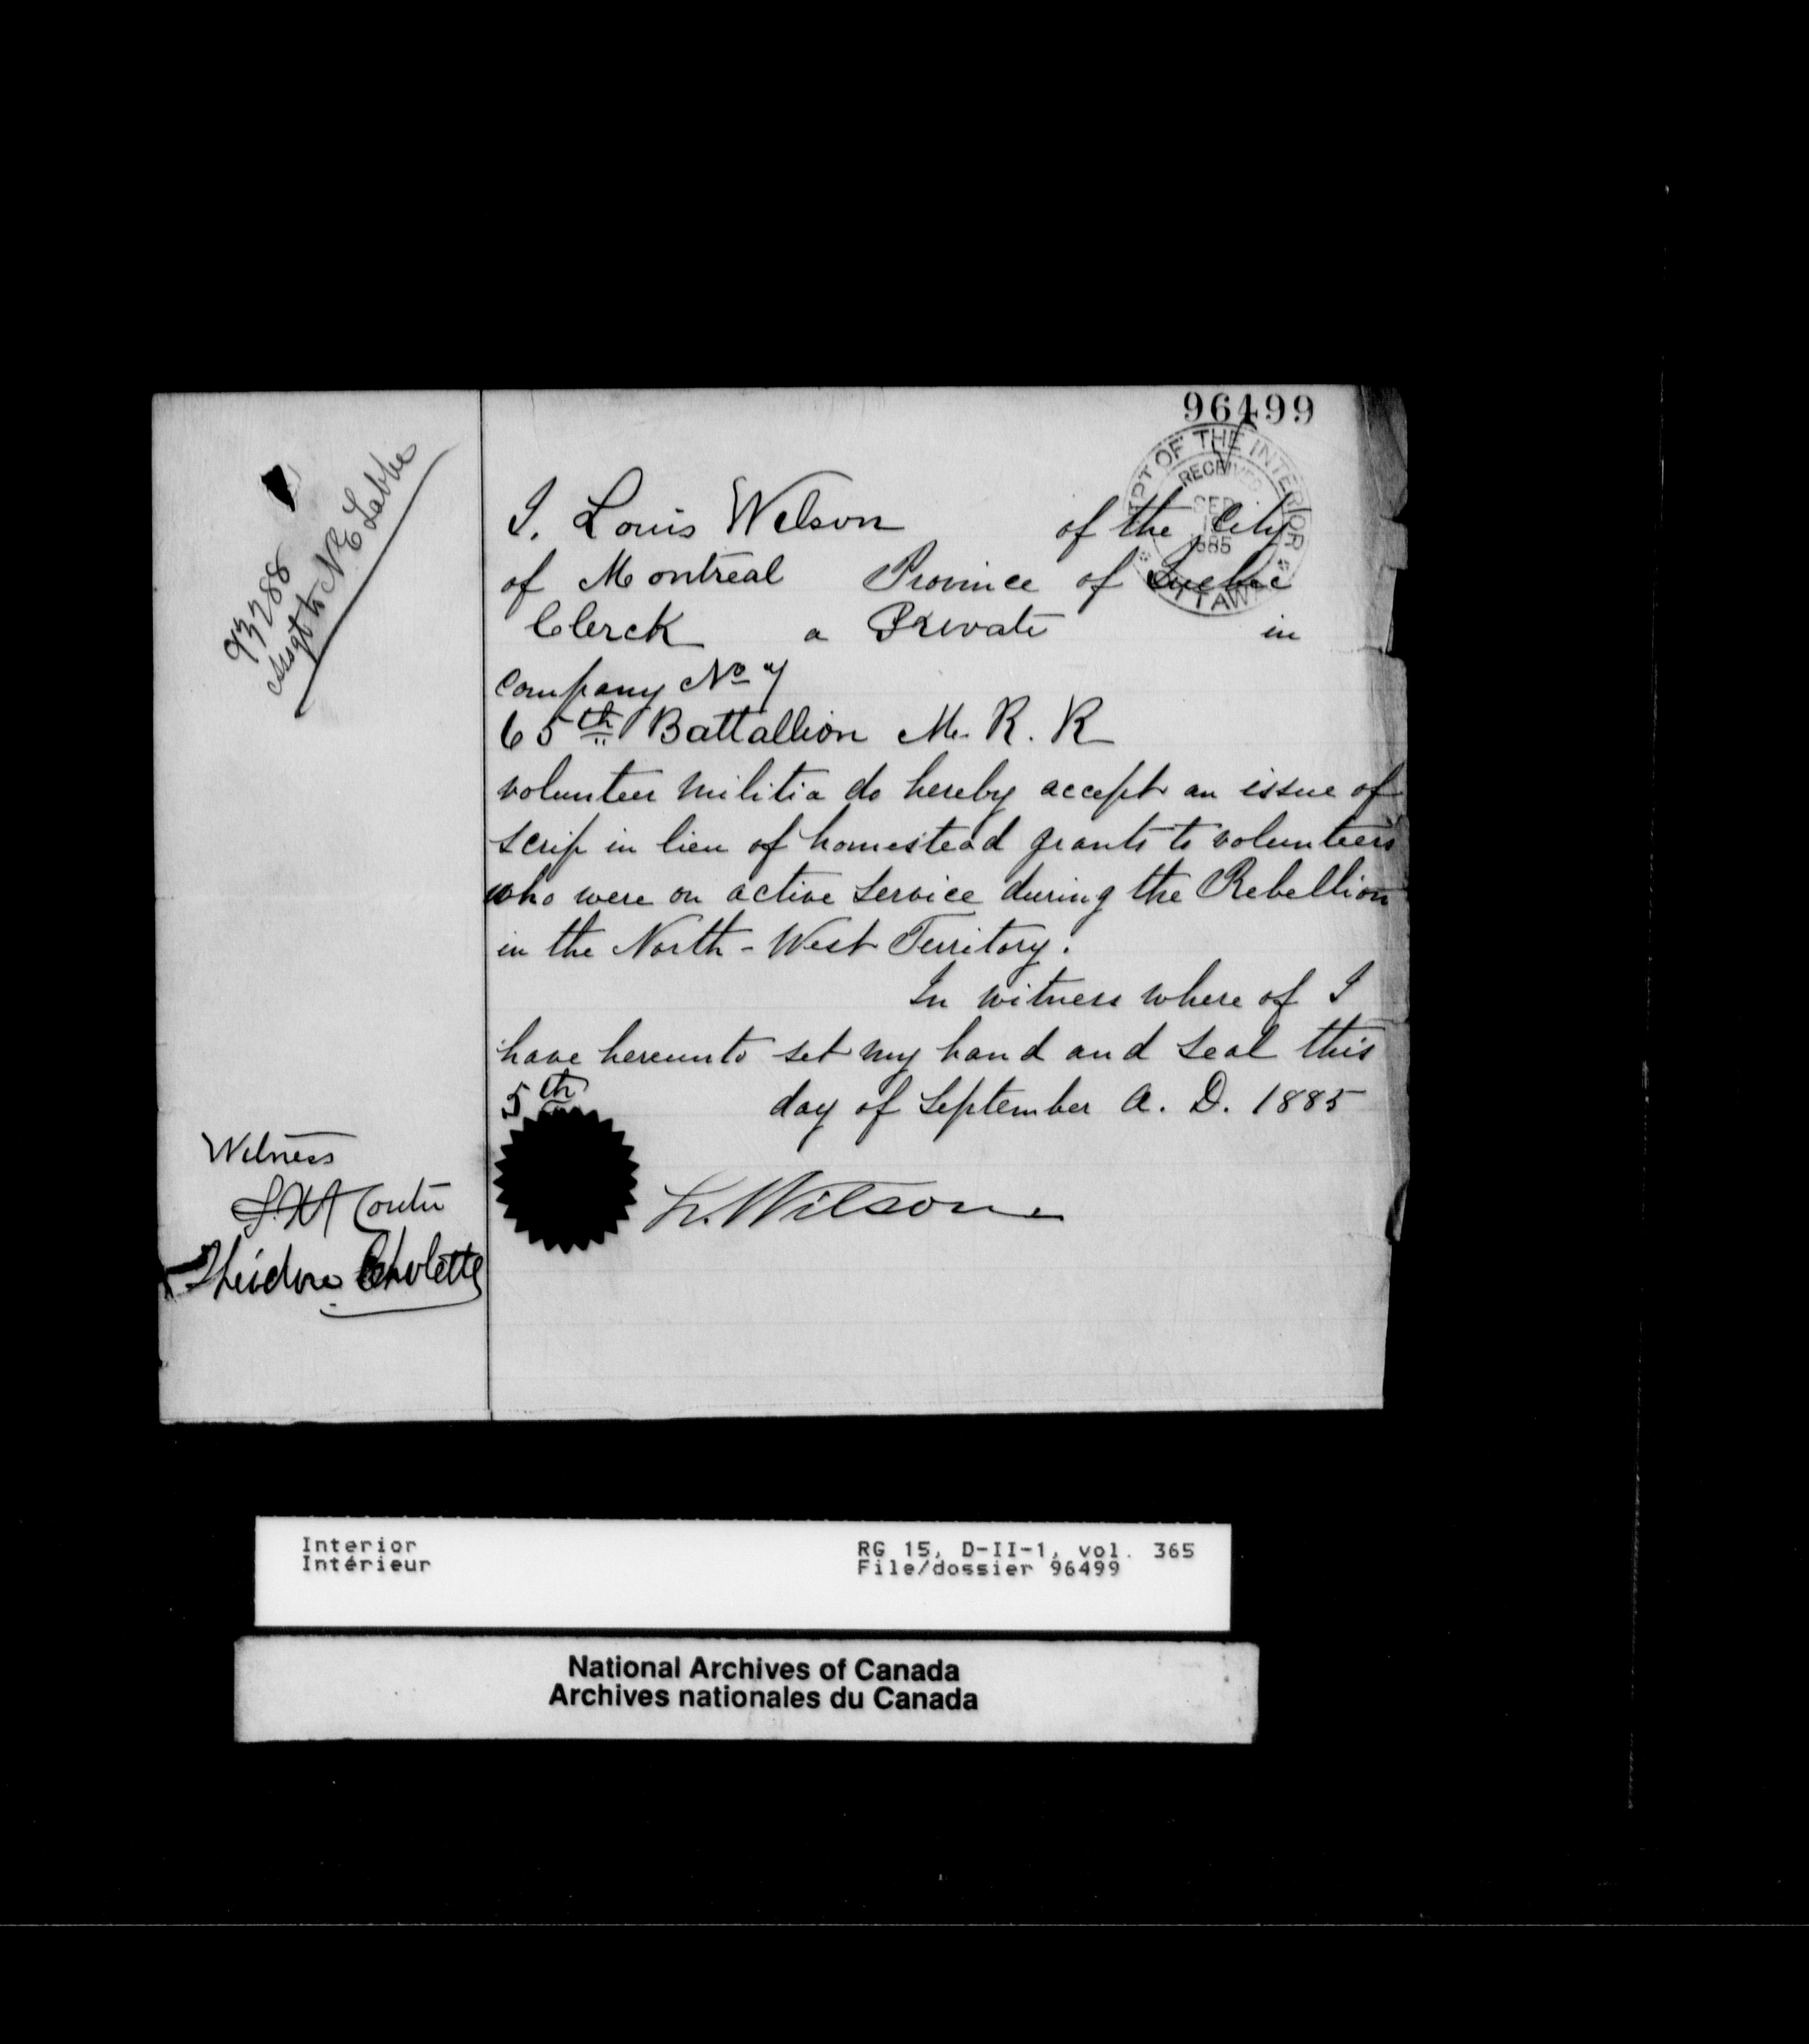 96499
DEPT OF THE INTERIOR
RECEIVED
SEP
1885
OTTAWA
93288
Assgt to N E Labbe
I, Louis Wilson of the City
of Montreal Province of Quebec
Clerck a Private in
Company No 7
65th Battallion M. R. R
volunteer militia do hereby accept an issue of
scrip in lieu of homestead grants to volunteers
who were on active service during the Rebellion
in the North-West Territory.
In witness where of I
have hereunto set my hand and seal this
5th day of September A. D. 1885
Witness
L. Wilson
Théodore Cholette
Interior
Intérieur
RG 15, D-II-1, vol. 365
File/dossier 96499
National Archives of Canada
Archives nationales du Canada